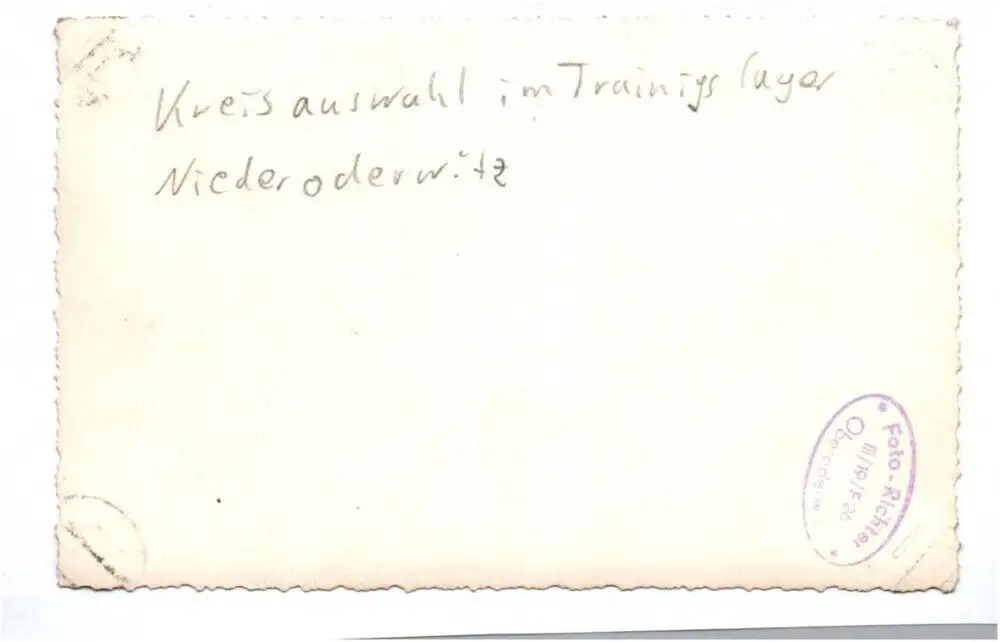 Kreisauswahl im Trainigslager
Niederoderwitz
Foto-Richter
III/19/F26